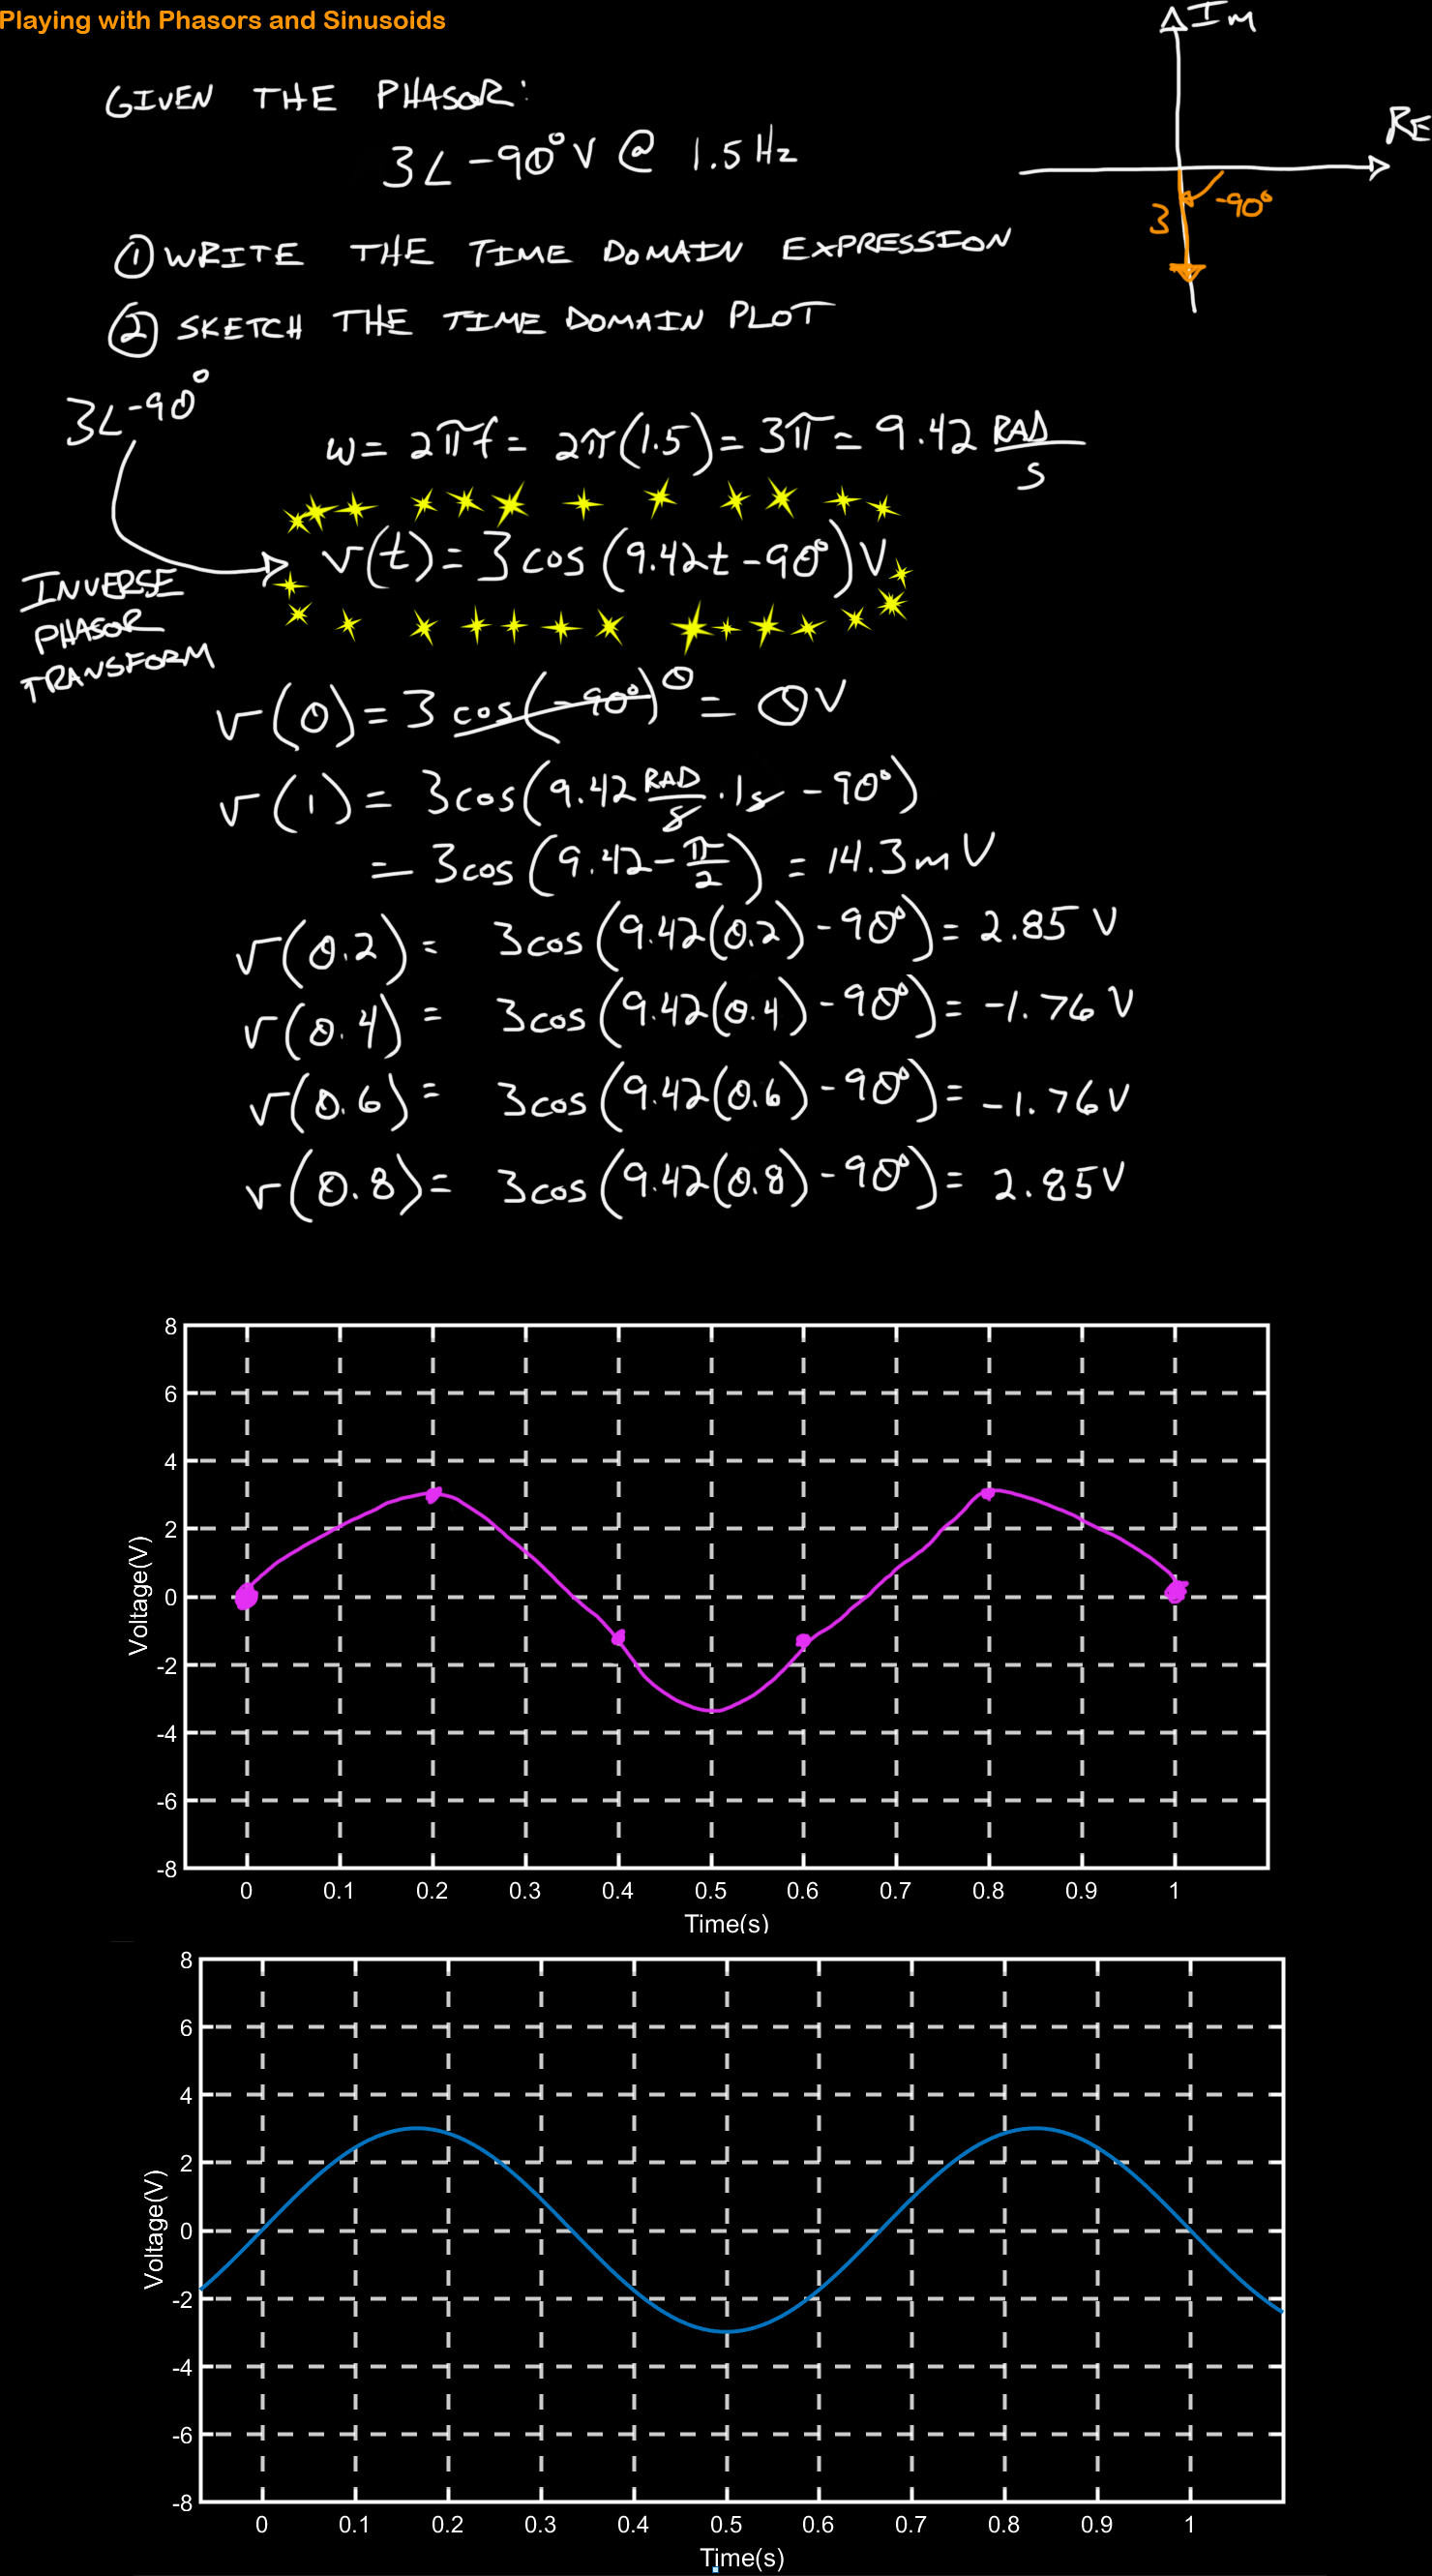 Playing with Phasors and Sinusoids
Im
RE
3
-90°
GIVEN THE PHASOR:
3∠-90° V @ 1.5 Hz
① WRITE THE TIME DOMAIN EXPRESSION
② SKETCH THE TIME DOMAIN PLOT
3∠-90°
ω = 2πf = 2π(1.5) = 3π = 9.42 RAD/S
INVERSE
PHASOR
TRANSFORM
v(t) = 3 cos (9.42t - 90°) V
v(0) = 3 cos(-90°) 0 = 0V
v(1) = 3cos(9.42 RAD/s · 1s - 90°)
= 3cos(9.42 - π/2) = 14.3m V
v(0.2) = 3cos(9.42(0.2) - 90°) = 2.85 V
v(0.4) = 3cos(9.42(0.4) - 90°) = -1.76 V
v(0.6) = 3cos(9.42(0.6) - 90°) = -1.76 V
v(0.8) = 3cos(9.42(0.8) - 90°) = 2.85V
8
6
4
2
0
-2
-4
-6
-8
Voltage(V)
0 0.1 0.2 0.3 0.4 0.5 0.6 0.7 0.8 0.9 1
Time(s)
8
6
4
2
0
-2
-4
-6
-8
Voltage(V)
0 0.1 0.2 0.3 0.4 0.5 0.6 0.7 0.8 0.9 1
Time(s)